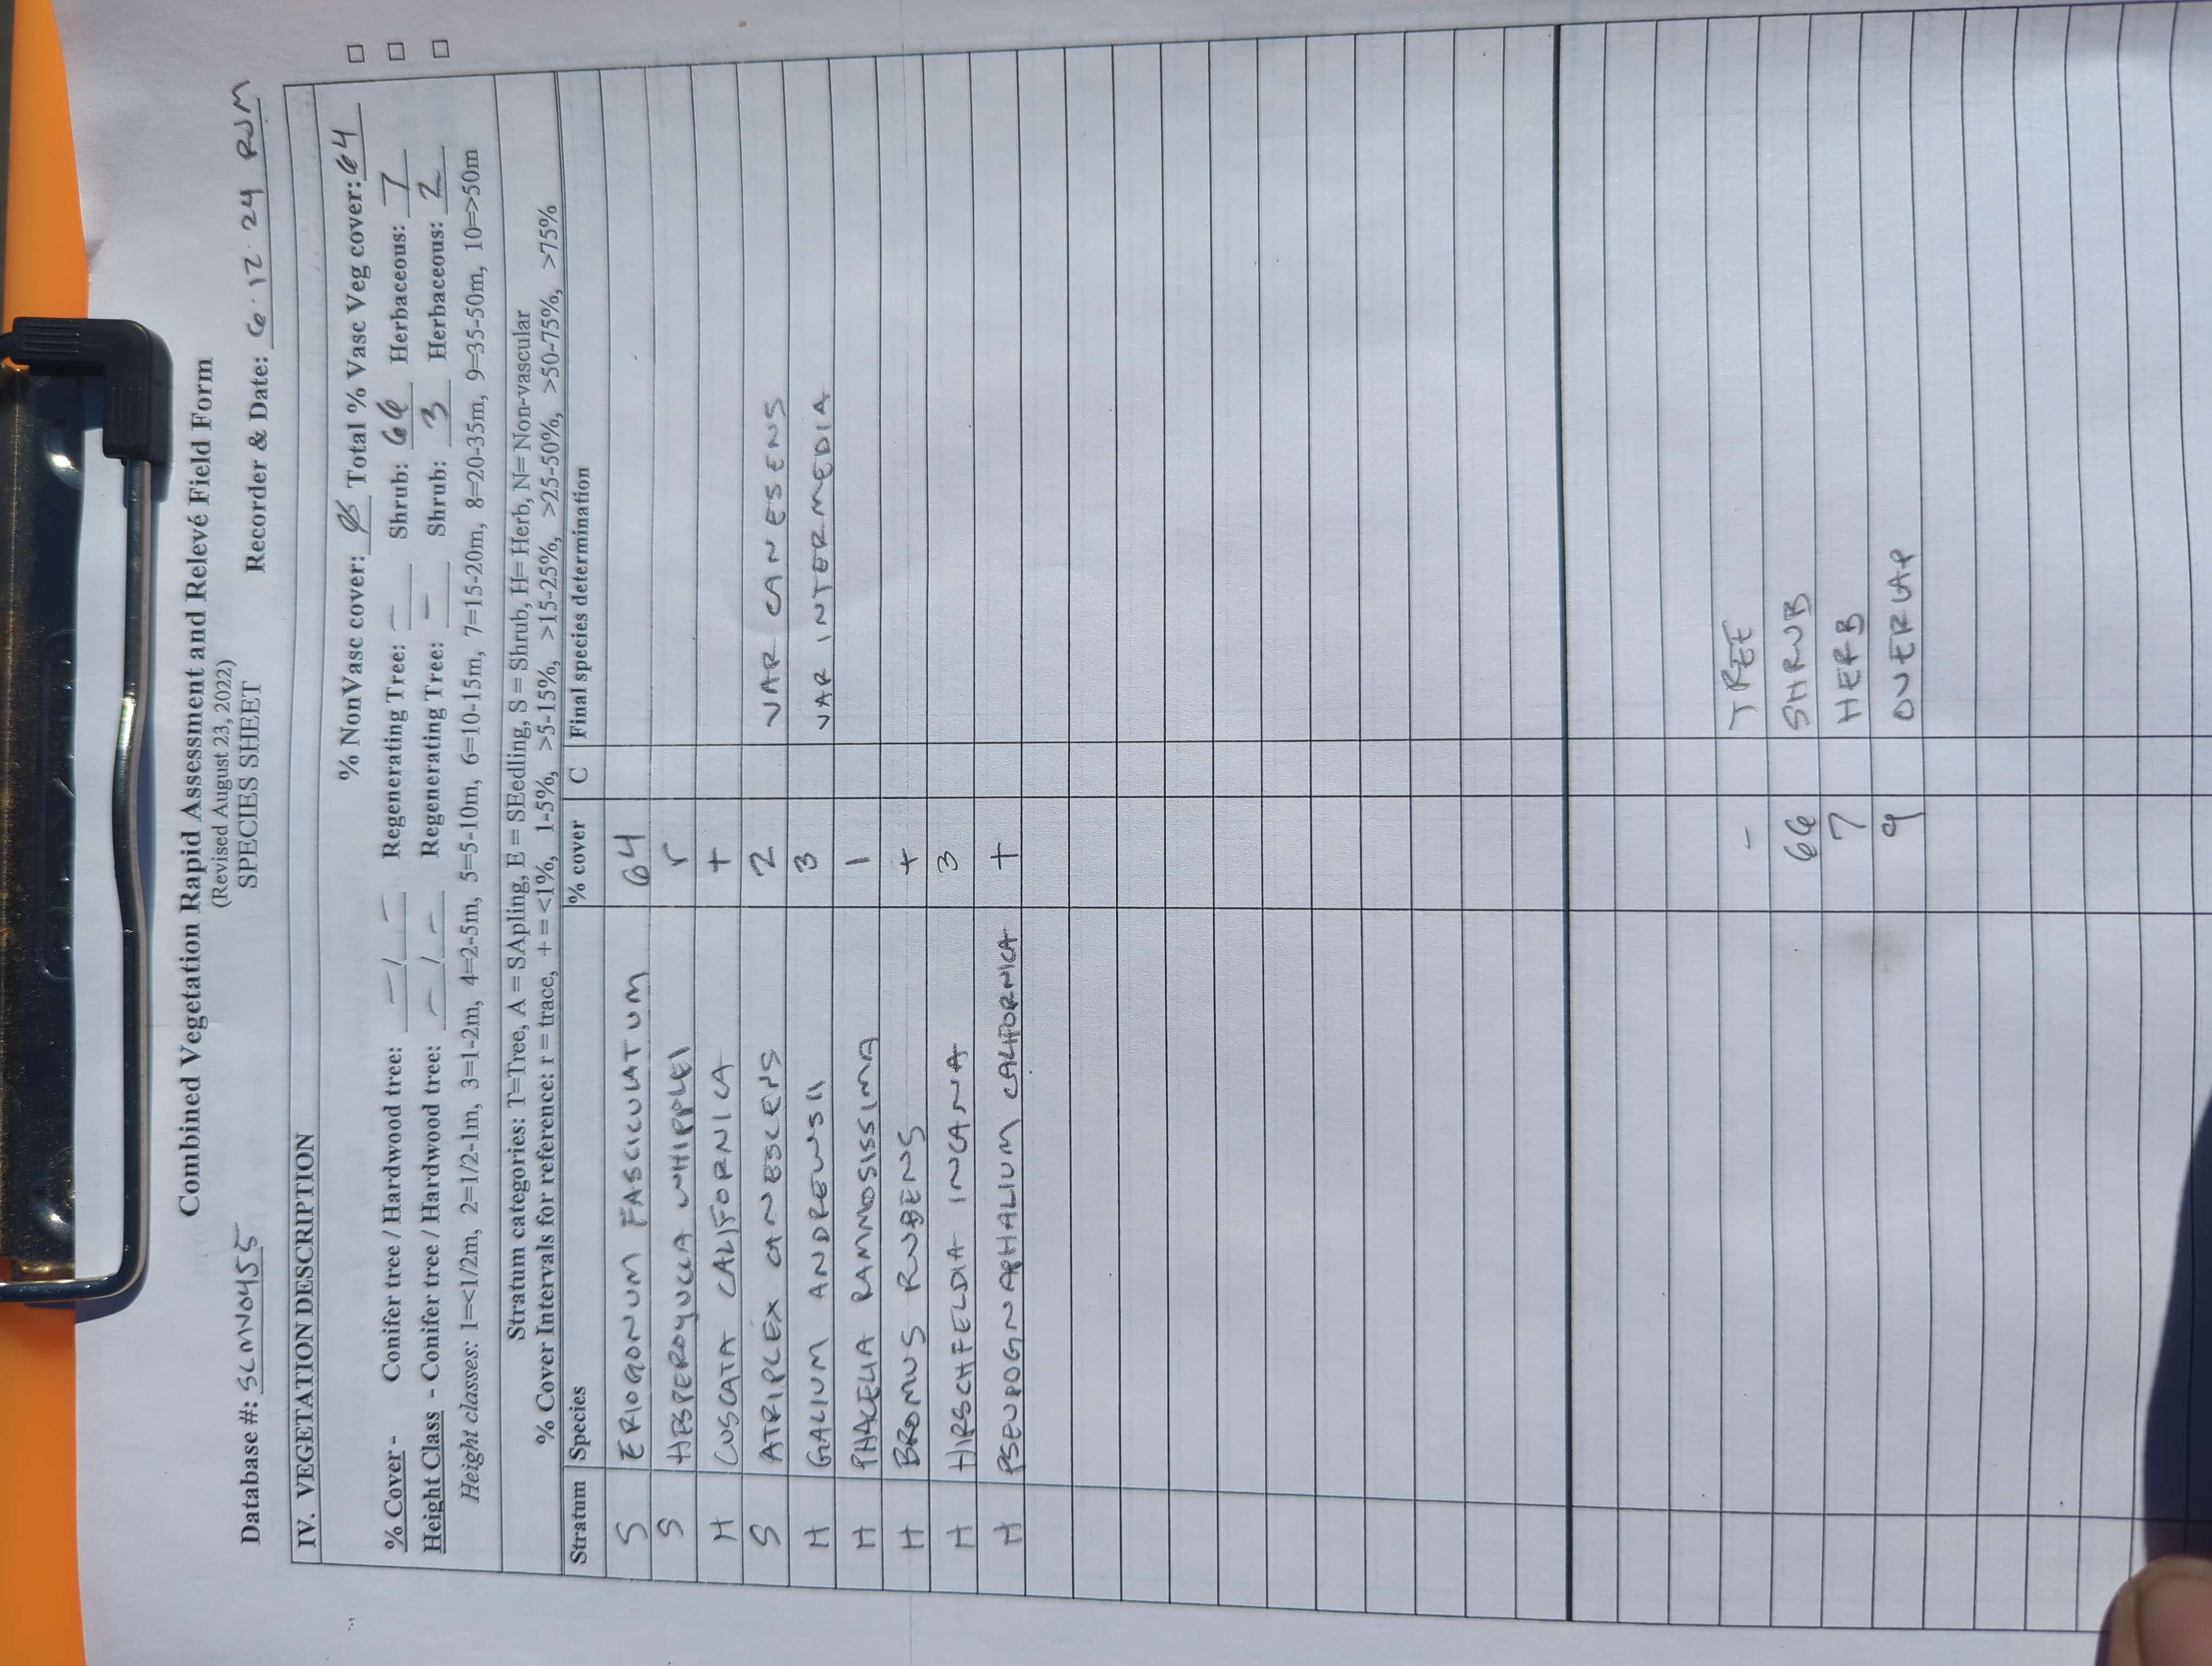 Combined Vegetation Rapid Assessment and Relevé Field Form
(Revised August 23, 2022)
SPECIES SHEET
Database #: SCMV0455 Recorder & Date: 6.12.24 RJM
IV. VEGETATION DESCRIPTION
% NonVasc cover: Ø Total % Vasc Veg cover: 64
% Cover - Conifer tree / Hardwood tree: - / - Regenerating Tree: - Shrub: 66 Herbaceous: 7
Height Class - Conifer tree / Hardwood tree: - / - Regenerating Tree: - Shrub: 3 Herbaceous: 2
Height classes: 1=<1/2m, 2=1/2-1m, 3=1-2m, 4=2-5m, 5=5-10m, 6=10-15m, 7=15-20m, 8=20-35m, 9=35-50m, 10=>50m
Stratum categories: T=Tree, A = SApling, E = SEedling, S = Shrub, H= Herb, N= Non-vascular
% Cover Intervals for reference: r = trace, + = <1%, 1-5%, >5-15%, >15-25%, >25-50%, >50-75%, >75%
Stratum Species % cover C Final species determination
S ERIOGONUM FASCICULATUM 64
S HESPEROYUCCA WHIPPLEI r
H CUSCATA CALIFORNICA +
S ATRIPLEX CANESCENS 2 VAR CANESENS
H GALIUM ANDREWSII 3 VAR INTERMEDIA
H PHACELIA RAMMOSISSIMA 1
H BROMUS RUBENS +
H HIRSCHFELDIA INCANA 3
H PSEUDOGNAPHALIUM CALIFORNICA +
- TREE
66 SHRUB
7 HERB
9 OVERLAP